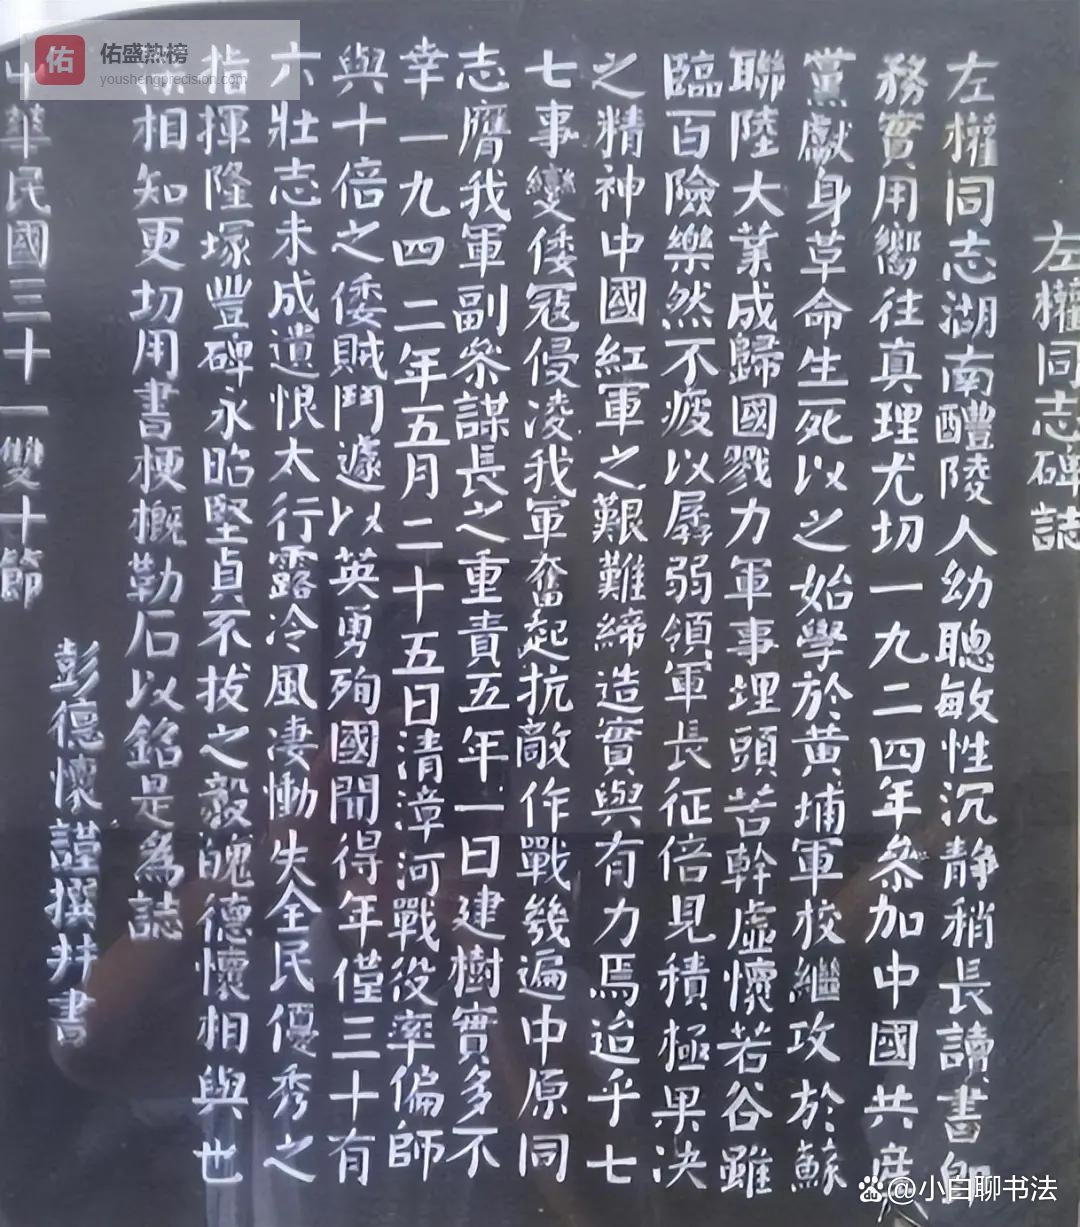 佑盛热榜
youshengprecision.com
佑
左權同志碑誌
左權同志湖南醴陵人幼聰敏性沉静稍長讀書即
務實用嚮往真理尤切一九二四年參加中國共産
黨獻身革命生死以之始學於黄埔軍校繼攻於蘇
聯陸大業成歸國戮力軍事埋頭苦幹虚懷若谷雖
臨百險樂然不疲以孱弱領軍長征倍見積極果决
之精神中國紅軍之艱難締造實與有力焉迨乎七
七事變倭冦侵凌我軍奮起抗敵作戰幾遍中原同
志膺我軍副參謀長之重責五年一日建樹實多不
幸一九四二年五月二十五日清漳河戰役率偏師
與十倍之倭賊鬥遽以英勇殉國聞得年僅三十有
六壯志未成遺恨太行露冷風凄慟失全民優秀之
指揮隆塚豐碑永昭堅貞不拔之毅魄德懷相與也
相知更切用書梗概勒石以銘是為誌
中華民國三十一雙十節
彭德懷謹撰并書
@小白聊书法